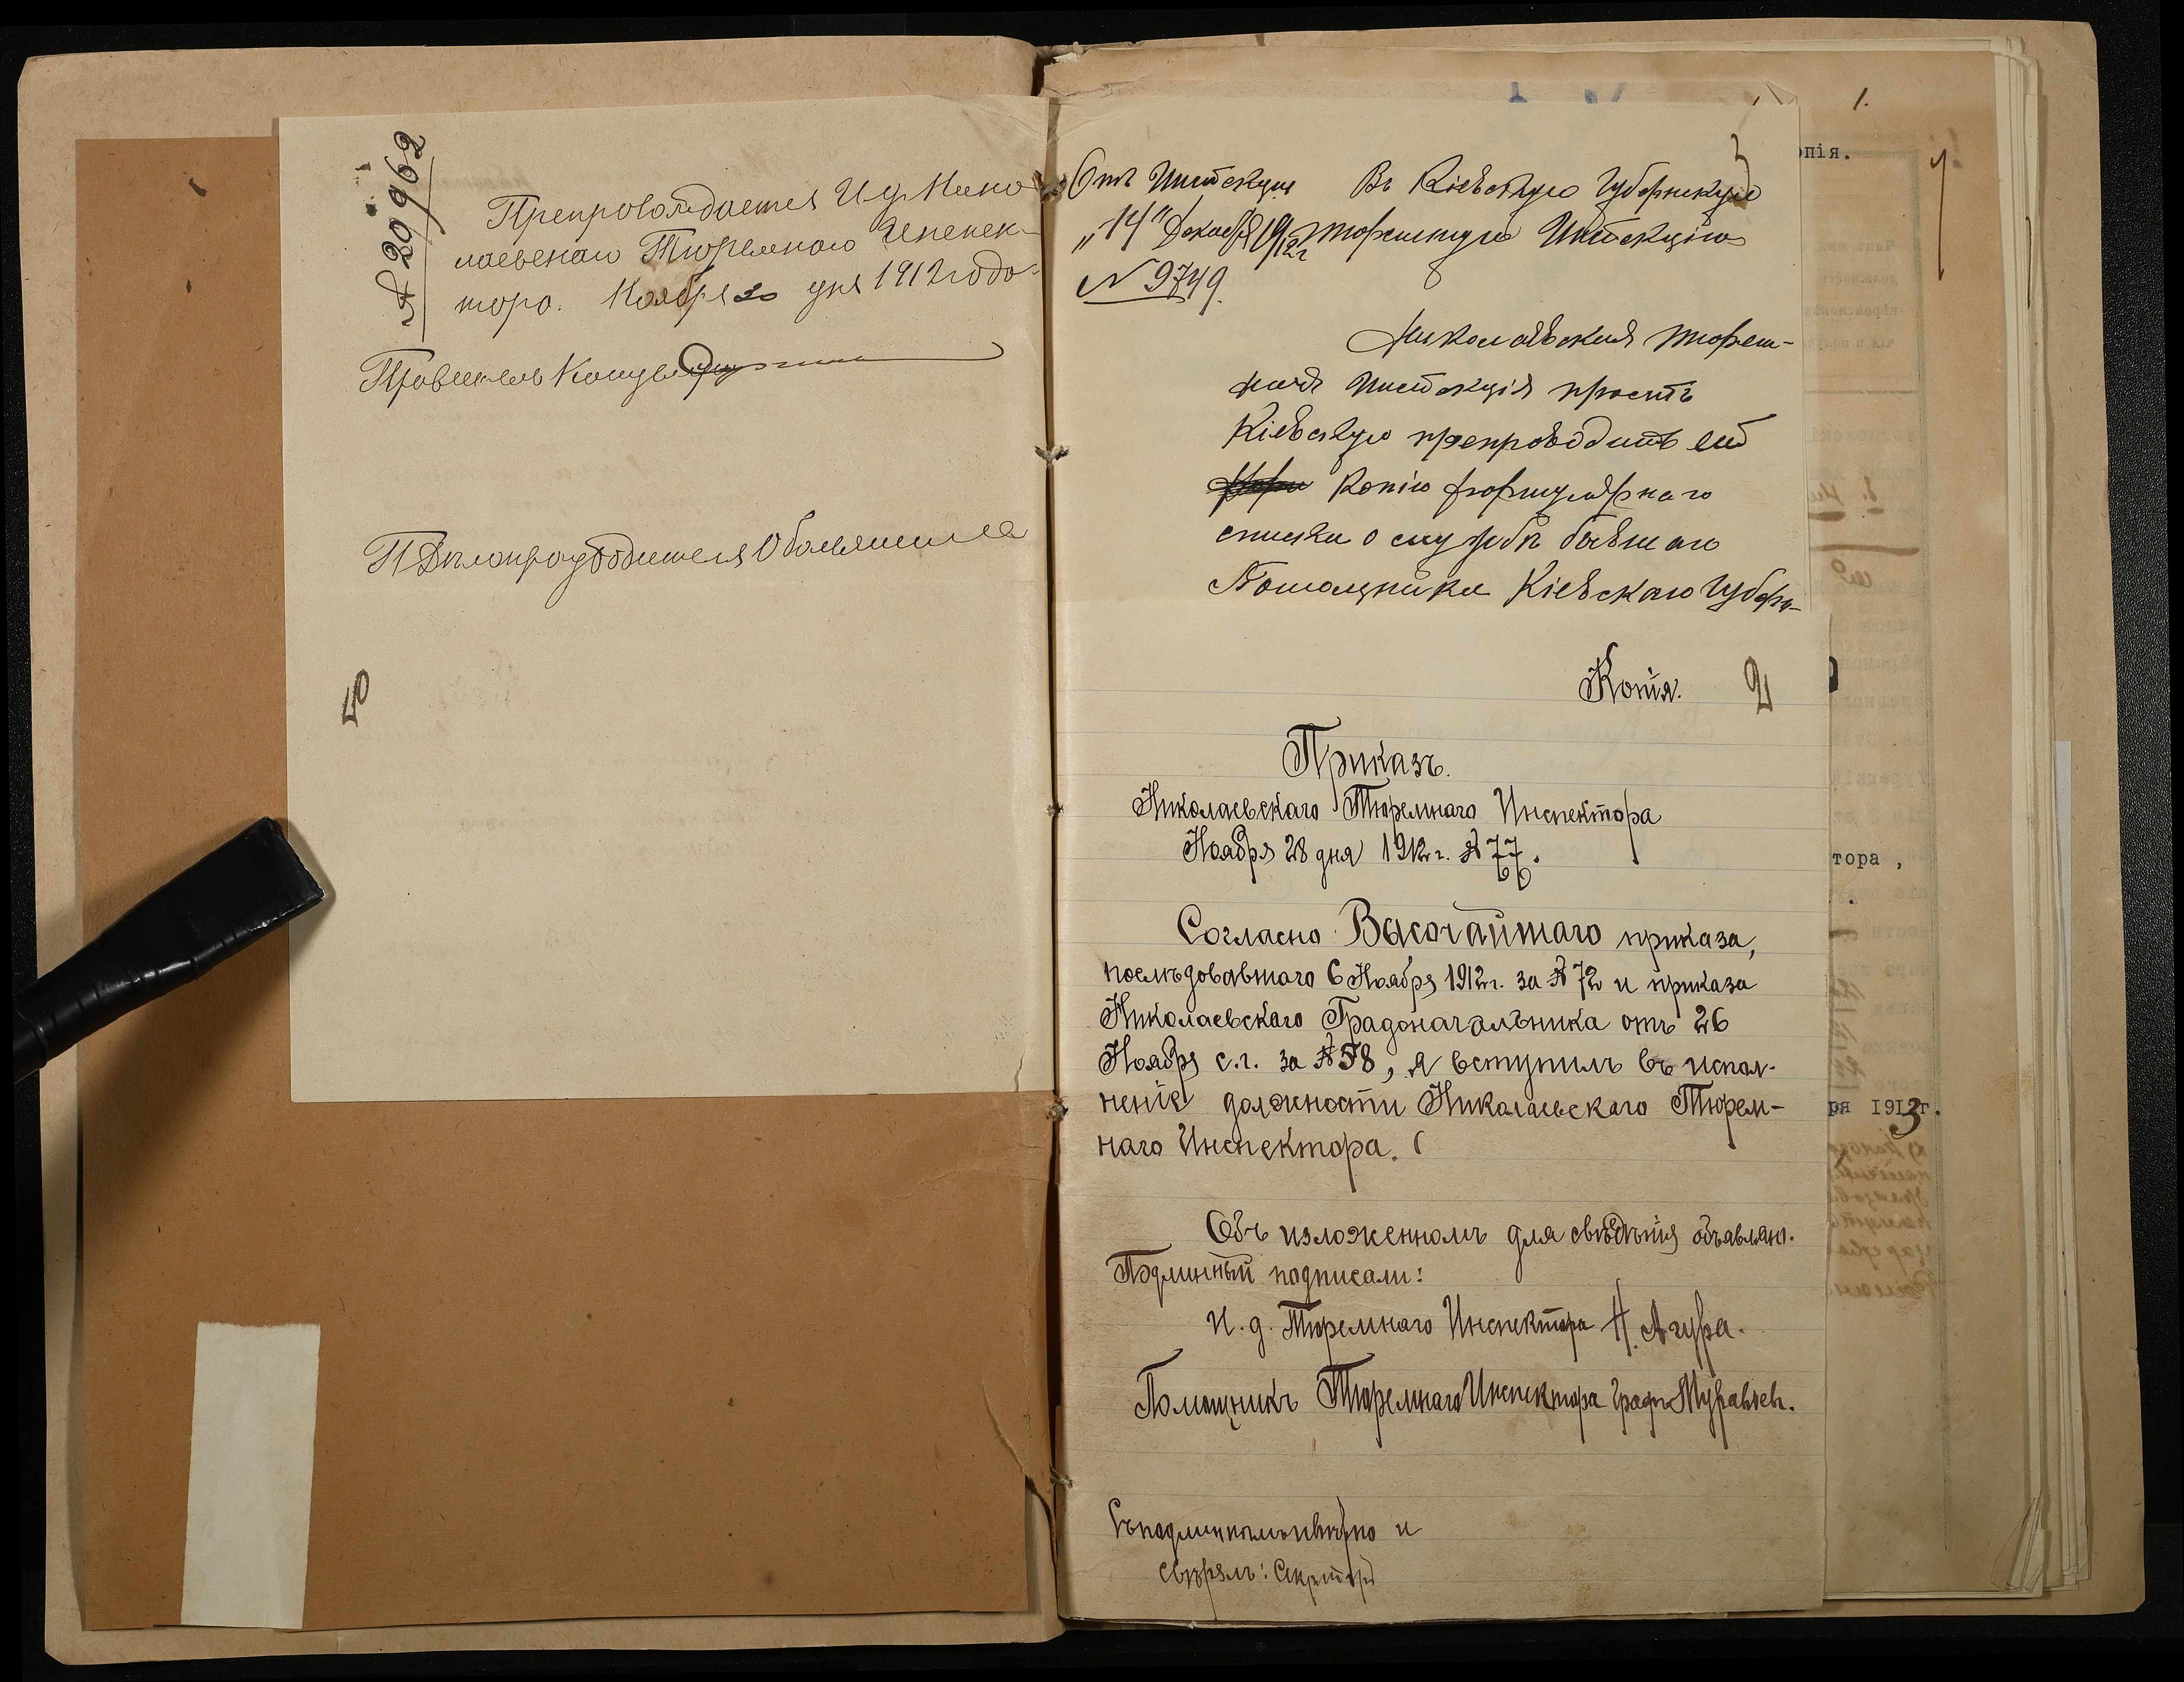 № 20962
Препровождается И д Нико
лаевскаго Тюремнаго Инспек-
тора. Ноября 30 дня 1912 года
Правитель Канцел
Делопроизводителя
40
1.
3
опія.
Отъ Инспекціи Въ Кіевскую Губернскую
„14" Декабря 1912г Тюремную Инспекцію
N 9749.
Николаевская тюрем-
ная Инспекція проситъ
Кіевскую препроводить ей
копію формулярнаго
списка о службѣ бывшаго
Помощника Кіевскаго Губерн-
Копія. 2
Приказъ.
Николаевскаго Тюремнаго Инспектора
Ноября 28 дня 1912 г. № 77.
тора ,
Согласно Высочайшаго приказа,
послѣдовавшаго 6 Ноября 1912 г. за № 72 и приказа
Николаевскаго Градоначальника отъ 26
Ноября с.г. за № 58, я вступилъ въ испол-
неніе должности Николаевскаго Тюрем-
ря 1913г.
наго Инспектора.
Объ изложенномъ для свѣдѣнія объявляю.
Подлинный подписали:
И. д. Тюремнаго Инспектора Н. Агура.
Помощникъ Тюремнаго Инспектора Графъ Муравьевъ.
Съ подлиннымъ вѣрно и
свѣрялъ: Секретарь